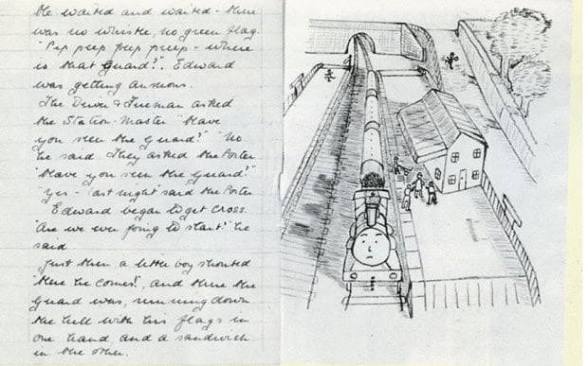 He waited and waited - there
was no whistle, no green flag.
"Peep peep peep peep - where
is that Guard?". Edward
was getting anxious.
The Driver & Fireman asked
the Station-Master "Have
you seen the Guard?" "No"
he said. They asked the Porter
"Have you seen the Guard?"
"Yes - last night" said the Porter
Edward began to get cross.
"Are we ever going to start?" he
said
Just then a little boy shouted
"Here he comes!", and there the
Guard was, running down
the hill with his flags in
one hand, and a sandwich
in the other.